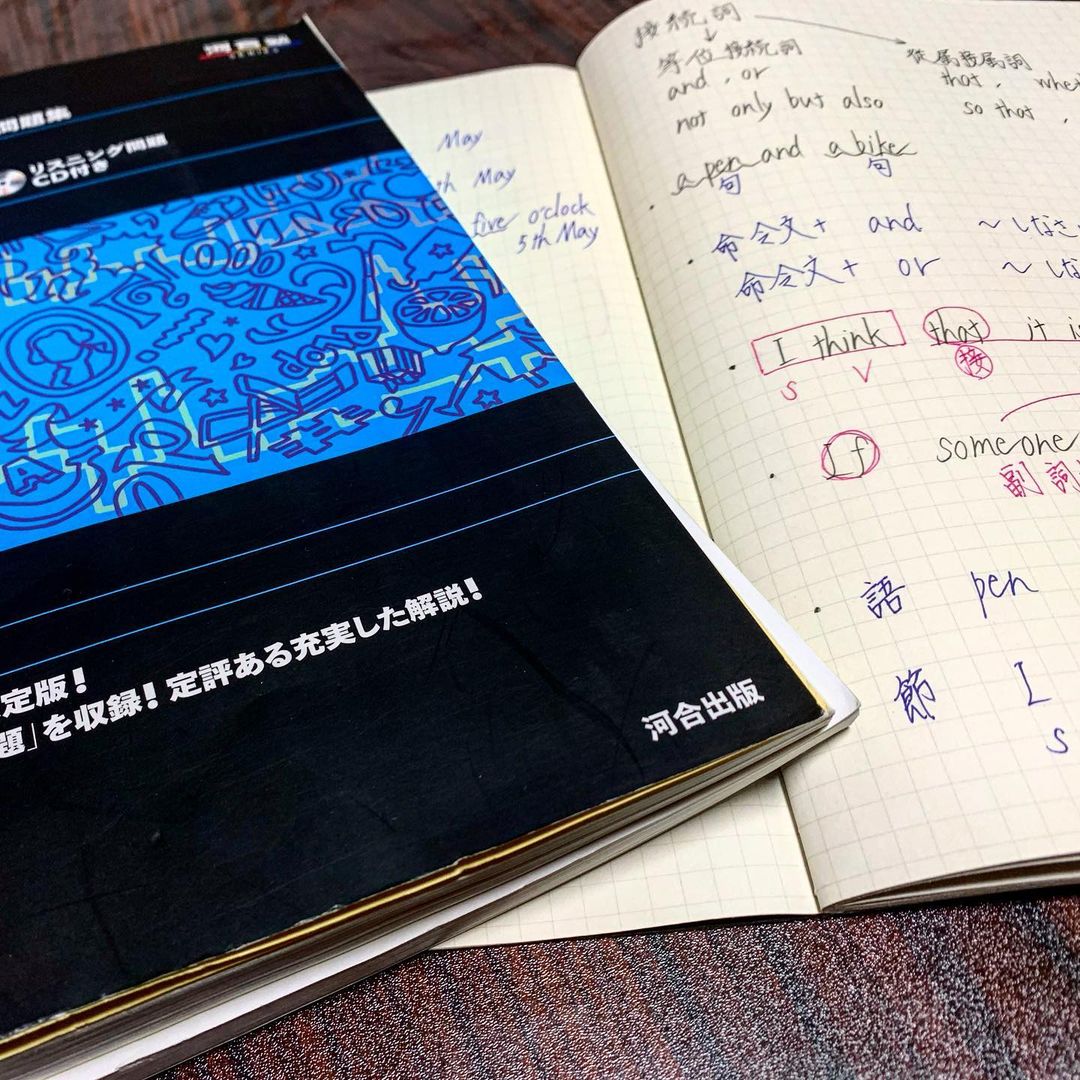 河合塾
SERIES
問題集
リスニング問題
CD付き
定版！
題」を収録！定評ある充実した解説！
河合出版
May
th May
five o'clock
5th May
接続詞
等位接続詞
and , or
not only but also
従属接属詞
that , whet
so that ,
a pen and a bike
句 句
命令文+ and ～しなさ
命令文+ or ～しな
I think that it is
S V 接
If someone
副詞
語 pen
節 I
S